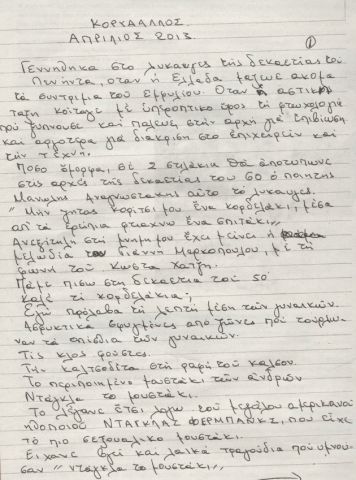 ΚΟΡΥΔΑΛΛΟΣ
ΑΠΡΙΛΙΟΣ 2013
1
Γεννήθηκα στο λυκαυγές της δεκαετίας του
Πενήντα, όταν η Ελλάδα μάζευε ακόμα
τα συντρίμια του Εμφυλίου. Όταν η αστική
τάξη κοίταζε με υπεροπτικό ύφος τη φτωχολογιά
πού ξυπνούσε και πάλευε στην αρχή για επιβίωση
και αργότερα για διάκριση στο επιχειρείν και
την τέχνη.
Πόσο όμορφα, σε 2 στιχάκια θα αποτυπώνει
στις αρχές της δεκαετίας του 60 ο ποιητής
Μανώλης Αναγνωστάκης αυτό το λυκαυγές.
"Μην ζητάς κορίτσι μου ένα κορδελάκι, μέσα
απ' τα ερείπια φτιάχνω ένα σπιτάκι,,
Ανεξίτηλη στη μνήμη μου έχει μείνει η
μελωδία του Γιάννη Μαρκόπουλου, με τη
φωνή του Κώστα Χατζή.
Πάμε πίσω στη δεκαετία του 50
Καλέ τι κορδελάκια;
Εγώ πρόλαβα τη λεπτή μέση των γυναικών.
Ασφυκτικά σφιγμένες από ζώνες που τουρμπώ
ναν τα οπίσθια των γυναικών.
Τις κλος φούστες.
Την καλτσοδέτα στη ραφή του καλσόν.
Το περιποιημένο μουστάκι των ανδρών
Ντάγκλα το μουστάκι.
Το λέγανε έτσι λόγω του μεγάλου αμερικανού
ηθοποιού ΝΤΑΓΚΛΑΣ ΦΕΡΜΠΑΝΚΣ, που είχε
το πιο σεξουαλικό μουστάκι.
Είχανε βγεί και λαϊκά τραγούδια που υμνού
σαν " Ντάγκλα το μουστάκι,,